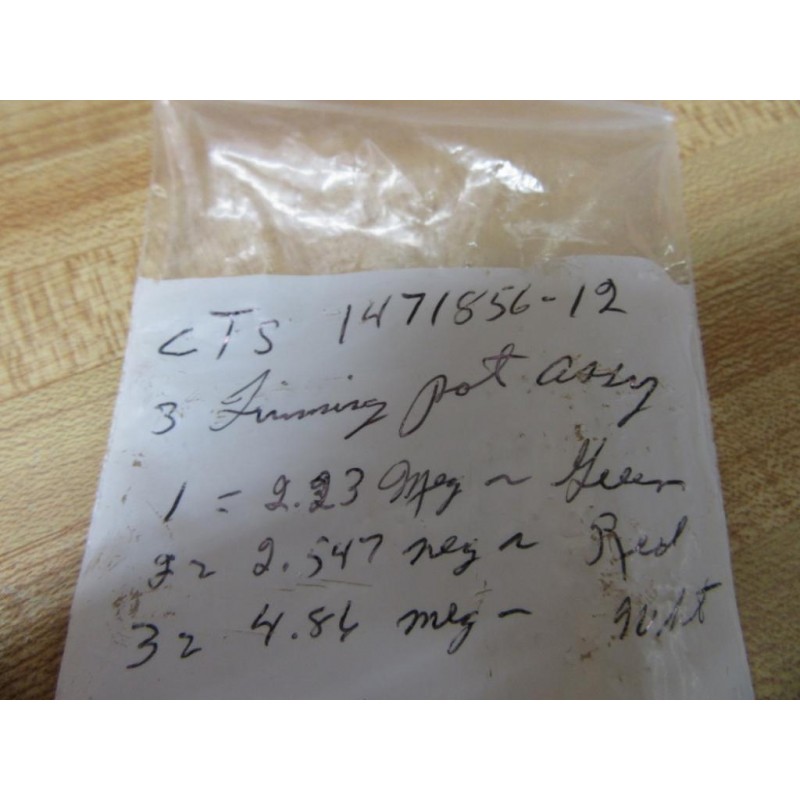 CTS 1471856-12
3 Timming pot assy
1 = 2.23 Meg ~ Green
2 = 2.547 meg ~ Red
3 = 4.86 meg - Wht